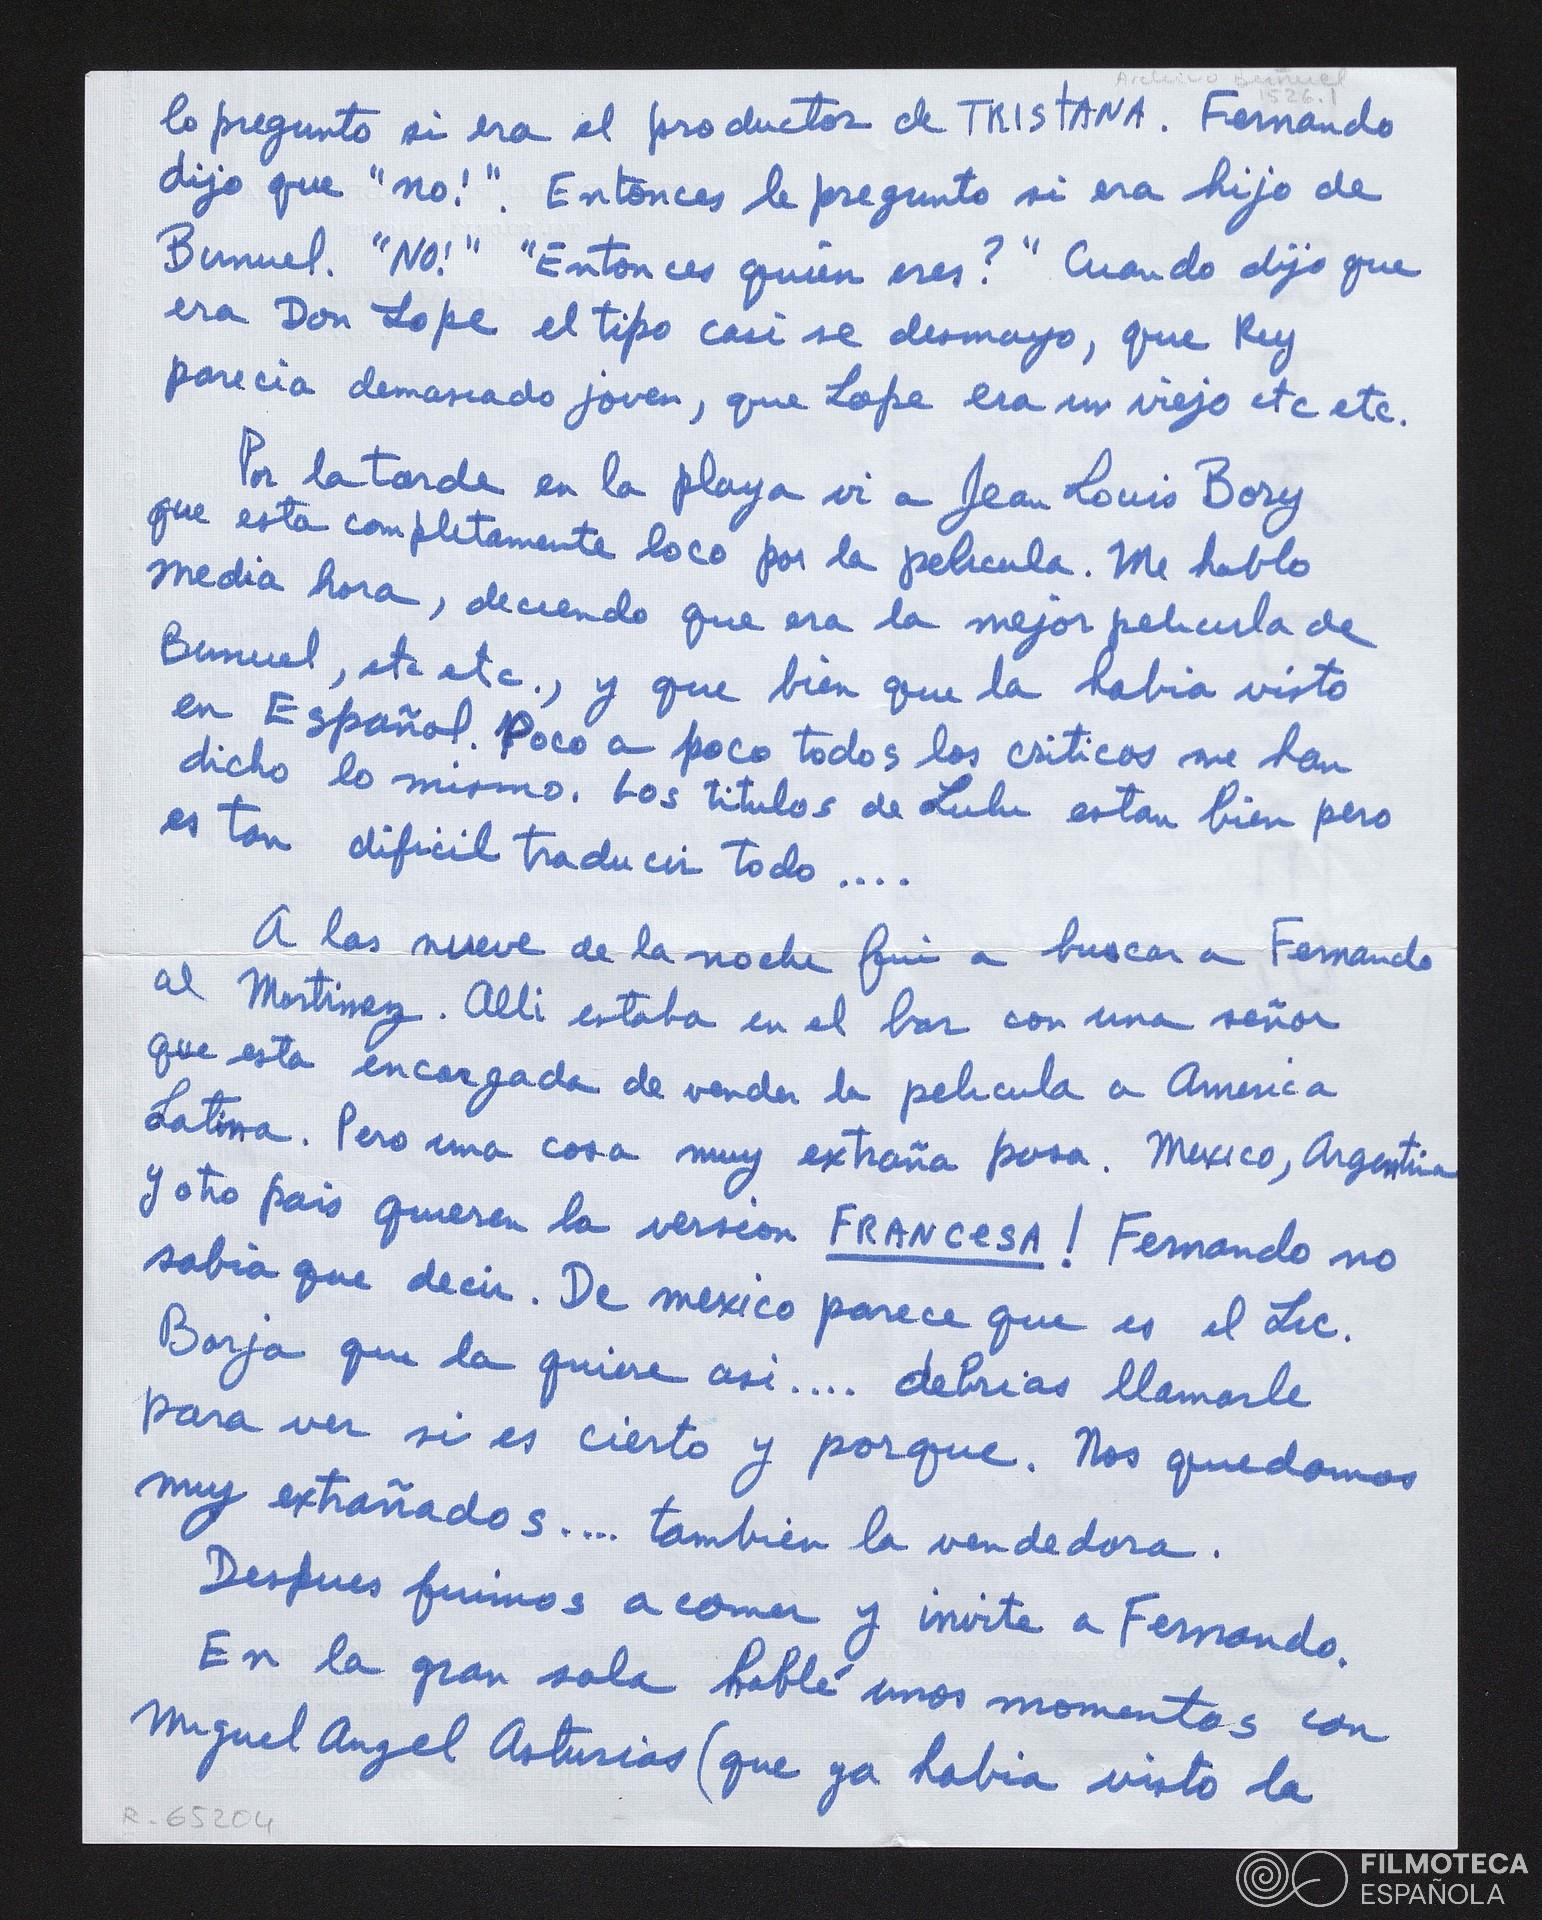 Archivo Buñuel
1526.1
lo pregunto si era el productor de TRISTANA. Fernando
dijo que "no!". Entonces le pregunto si era hijo de
Bunuel. "NO!" "Entonces quién eres?" Cuando dijo que
era Don Lope el tipo casi se desmayo, que Rey
parecia demasiado joven, que Lope era un viejo etc etc.
Por la tarde en la playa vi a Jean Louis Bory
que esta completamente loco por la pelicula. Me hablo
media hora, deciendo que era la mejor pelicula de
Bunuel, etc etc., y que bien que la habia visto
en Español. Poco a poco todos los criticos me han
dicho lo mismo. Los titulos de Lulu estan bien pero
es tan dificil traducir todo ....
A las nueve de la noche fui a buscar a Fernando
al Martinez. Alli estaba en el bar con una señor
que esta encargada de vender la pelicula a America
Latina. Pero una cosa muy extraña pasa. Mexico, Argentina
y otro pais quieren la version FRANCESA! Fernando no
sabia que decir. De mexico parece que es el Lic.
Borja que la quiere asi.... debrias llamarle
para ver si es cierto y porque. Nos quedamos
muy extrañados.... tambien la vendedora.
Despues fuimos a comer y invite a Fernando.
En la gran sala hablé unos momentos con
Miguel Angel Asturias (que ya habia visto la
R. 65204
FILMOTECA
ESPAÑOLA